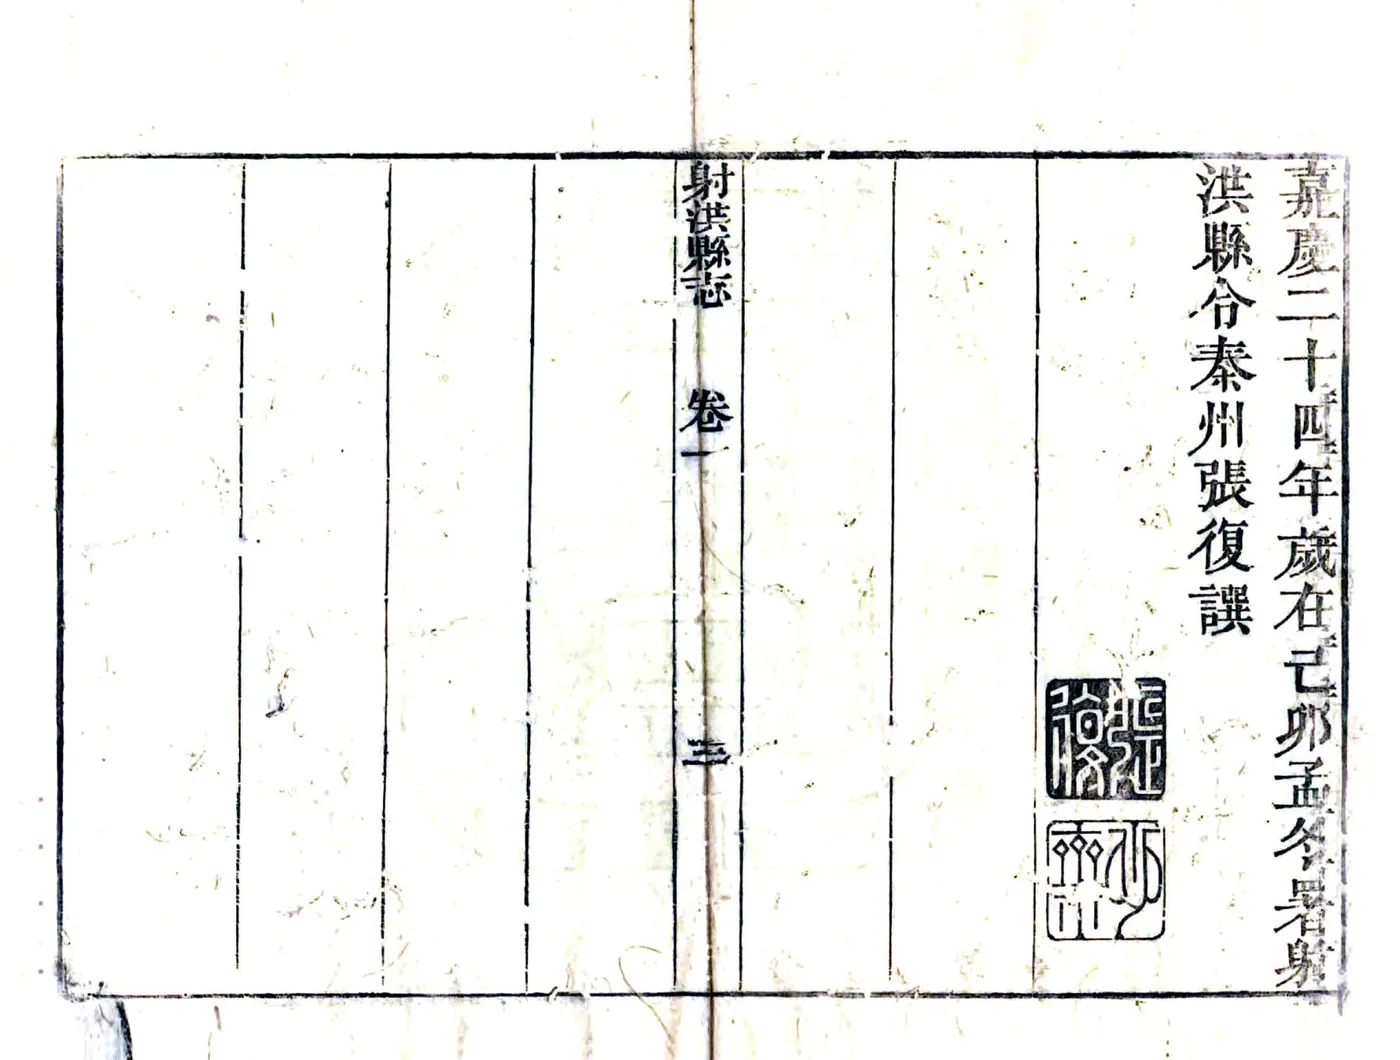 嘉慶二十四年歲在己卯孟冬署射
洪縣令秦州張復譔
張復
射洪縣志 卷一 三